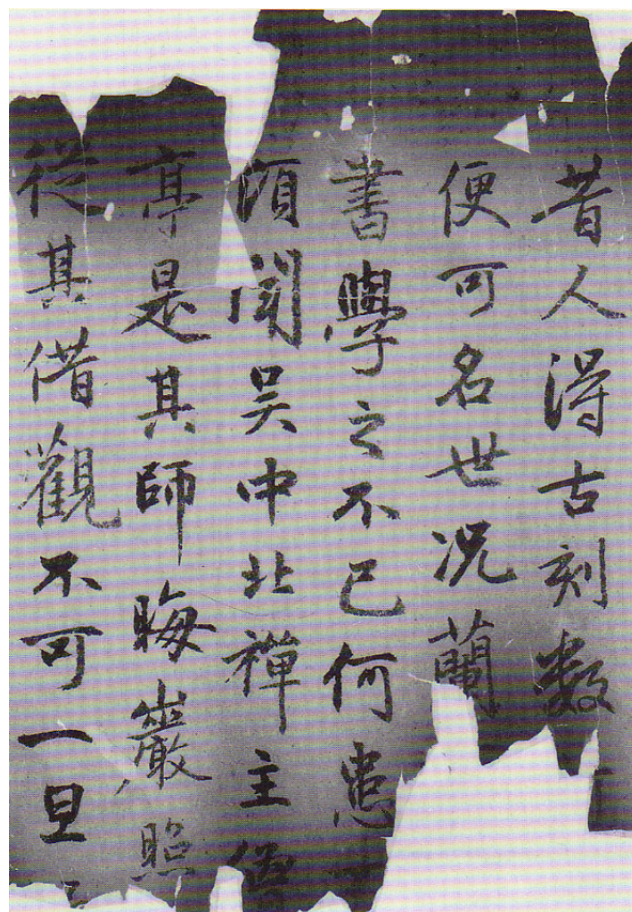 昔人得古刻數
便可名世况蘭
書學之不已何患
頃聞吳中北禪主僧
亭是其師晦巖照
從其借觀不可一旦